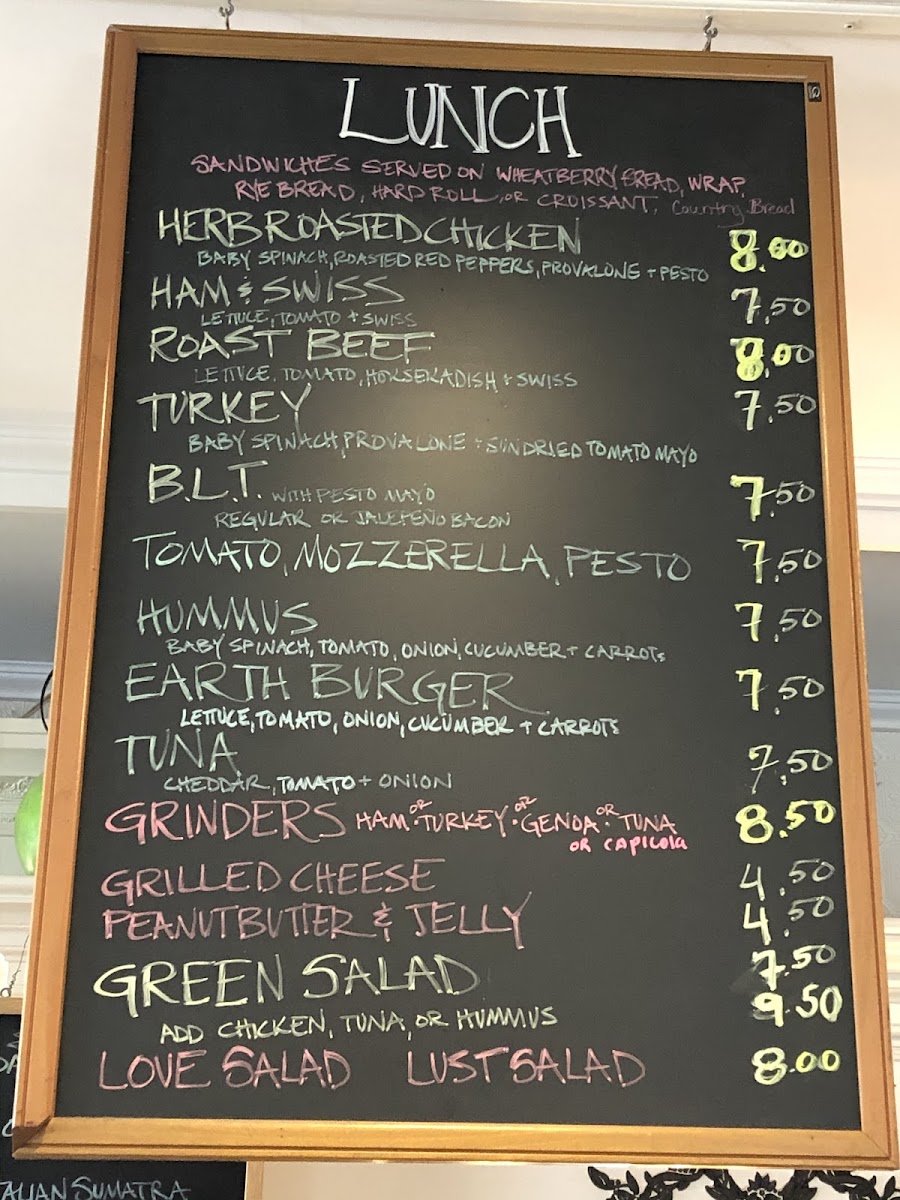 LUNCH
SANDWICHES SERVED ON WHEATBERRY BREAD, WRAP,
RYE BREAD, HARD ROLL, OR CROISSANT, Country Bread
HERB ROASTED CHICKEN 8.00
BABY SPINACH, ROASTED RED PEPPERS, PROVALONE + PESTO
HAM & SWISS 7.50
LETTUCE, TOMATO + SWISS
ROAST BEEF 8.00
LETTUCE, TOMATO, HORSERADISH + SWISS
TURKEY 7.50
BABY SPINACH, PROVALONE + SUNDRIED TOMATO MAYO
B.L.T. WITH PESTO MAYO 7.50
REGULAR OR JALEPEÑO BACON
TOMATO, MOZZERELLA, PESTO 7.50
HUMMUS 7.50
BABY SPINACH, TOMATO, ONION, CUCUMBER + CARROTS
EARTH BURGER 7.50
LETTUCE, TOMATO, ONION, CUCUMBER + CARROTS
TUNA 7.50
CHEDDAR, TOMATO + ONION
GRINDERS HAM OR TURKEY OR GENOA OR TUNA 8.50
OR CAPICOLA
GRILLED CHEESE 4.50
PEANUT BUTTER & JELLY 4.50
GREEN SALAD 7.50
ADD CHICKEN, TUNA, OR HUMMUS 9.50
LOVE SALAD LUST SALAD 8.00
SUMATRA